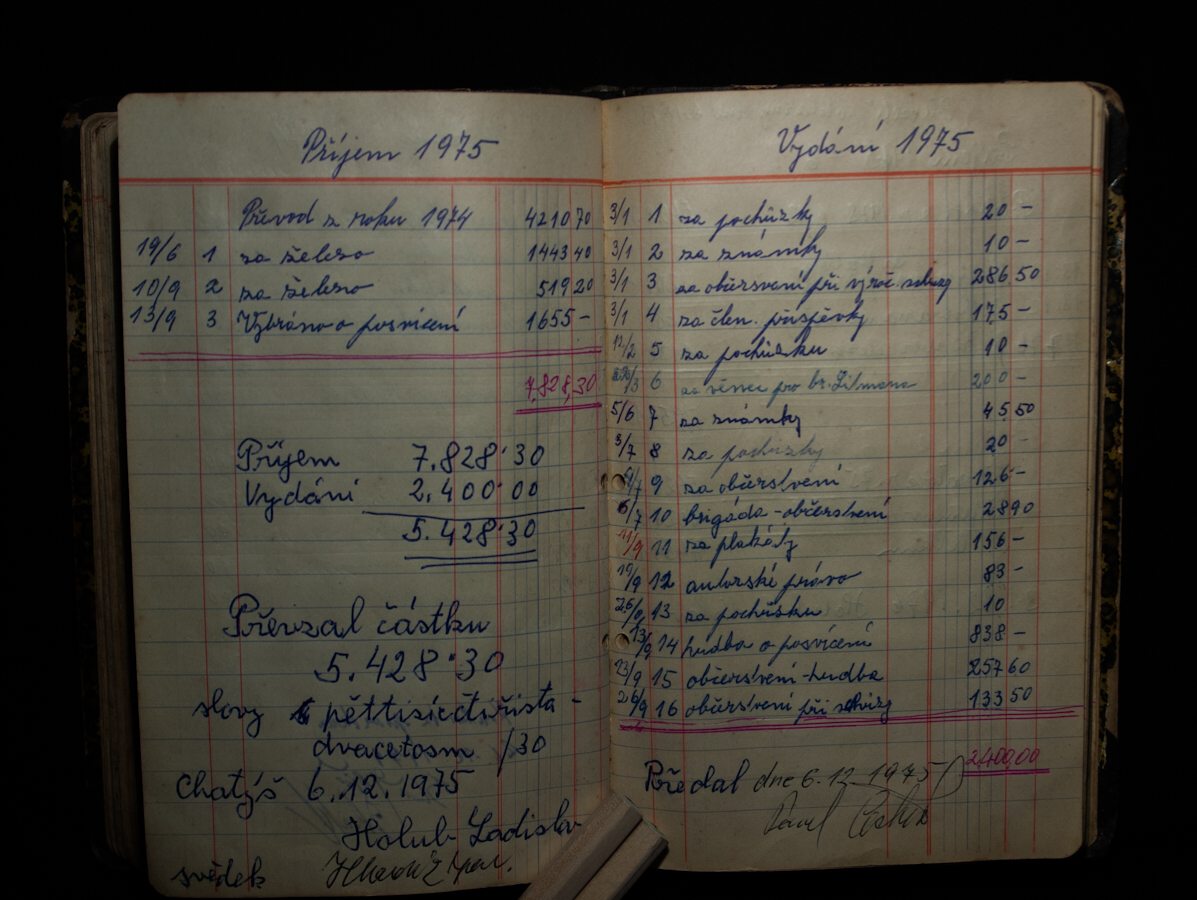 Příjem 1975
Převod z roku 1974 4210 70
19/6 1 za železo 1443 40
10/9 2 za železo 519 20
13/9 3 Vybráno o posvícení 1655 –
7.828,30
Příjem 7.828·30
Vydání 2.400·00
5.428·30
Převzal částku
5.428·30
slovy pěttisícčtyřista -
dvacetosm /30
Chatýš 6.12.1975
Holub Ladislav
svědek
Vydání 1975
3/1 1 za pochůzky 20 –
3/1 2 za známky 10 –
3/1 3 za občersvení při výroč. schůzy 286 50
3/1 4 za člen. příspěvky 175 –
12/2 5 za pochůzku 10 –
6 za věnec pro br. 200 –
5/6 7 za známky 45,50
3/7 8 za pochůzky 20 –
9 za občerstvení 126 –
6/7 10 brigáda – občerstvení 28 90
11/9 11 za plakáty 156 –
19/9 12 autorské právo 83 –
26/8 13 za pochůsku 10
13/9 14 hudba o posvícení 838 –
23/9 15 občerstvení – hudba 257 60
26/9 16 občerstvení při schůzy 133 50
2.400,00
Předal dne 6.12.1975
Pavel